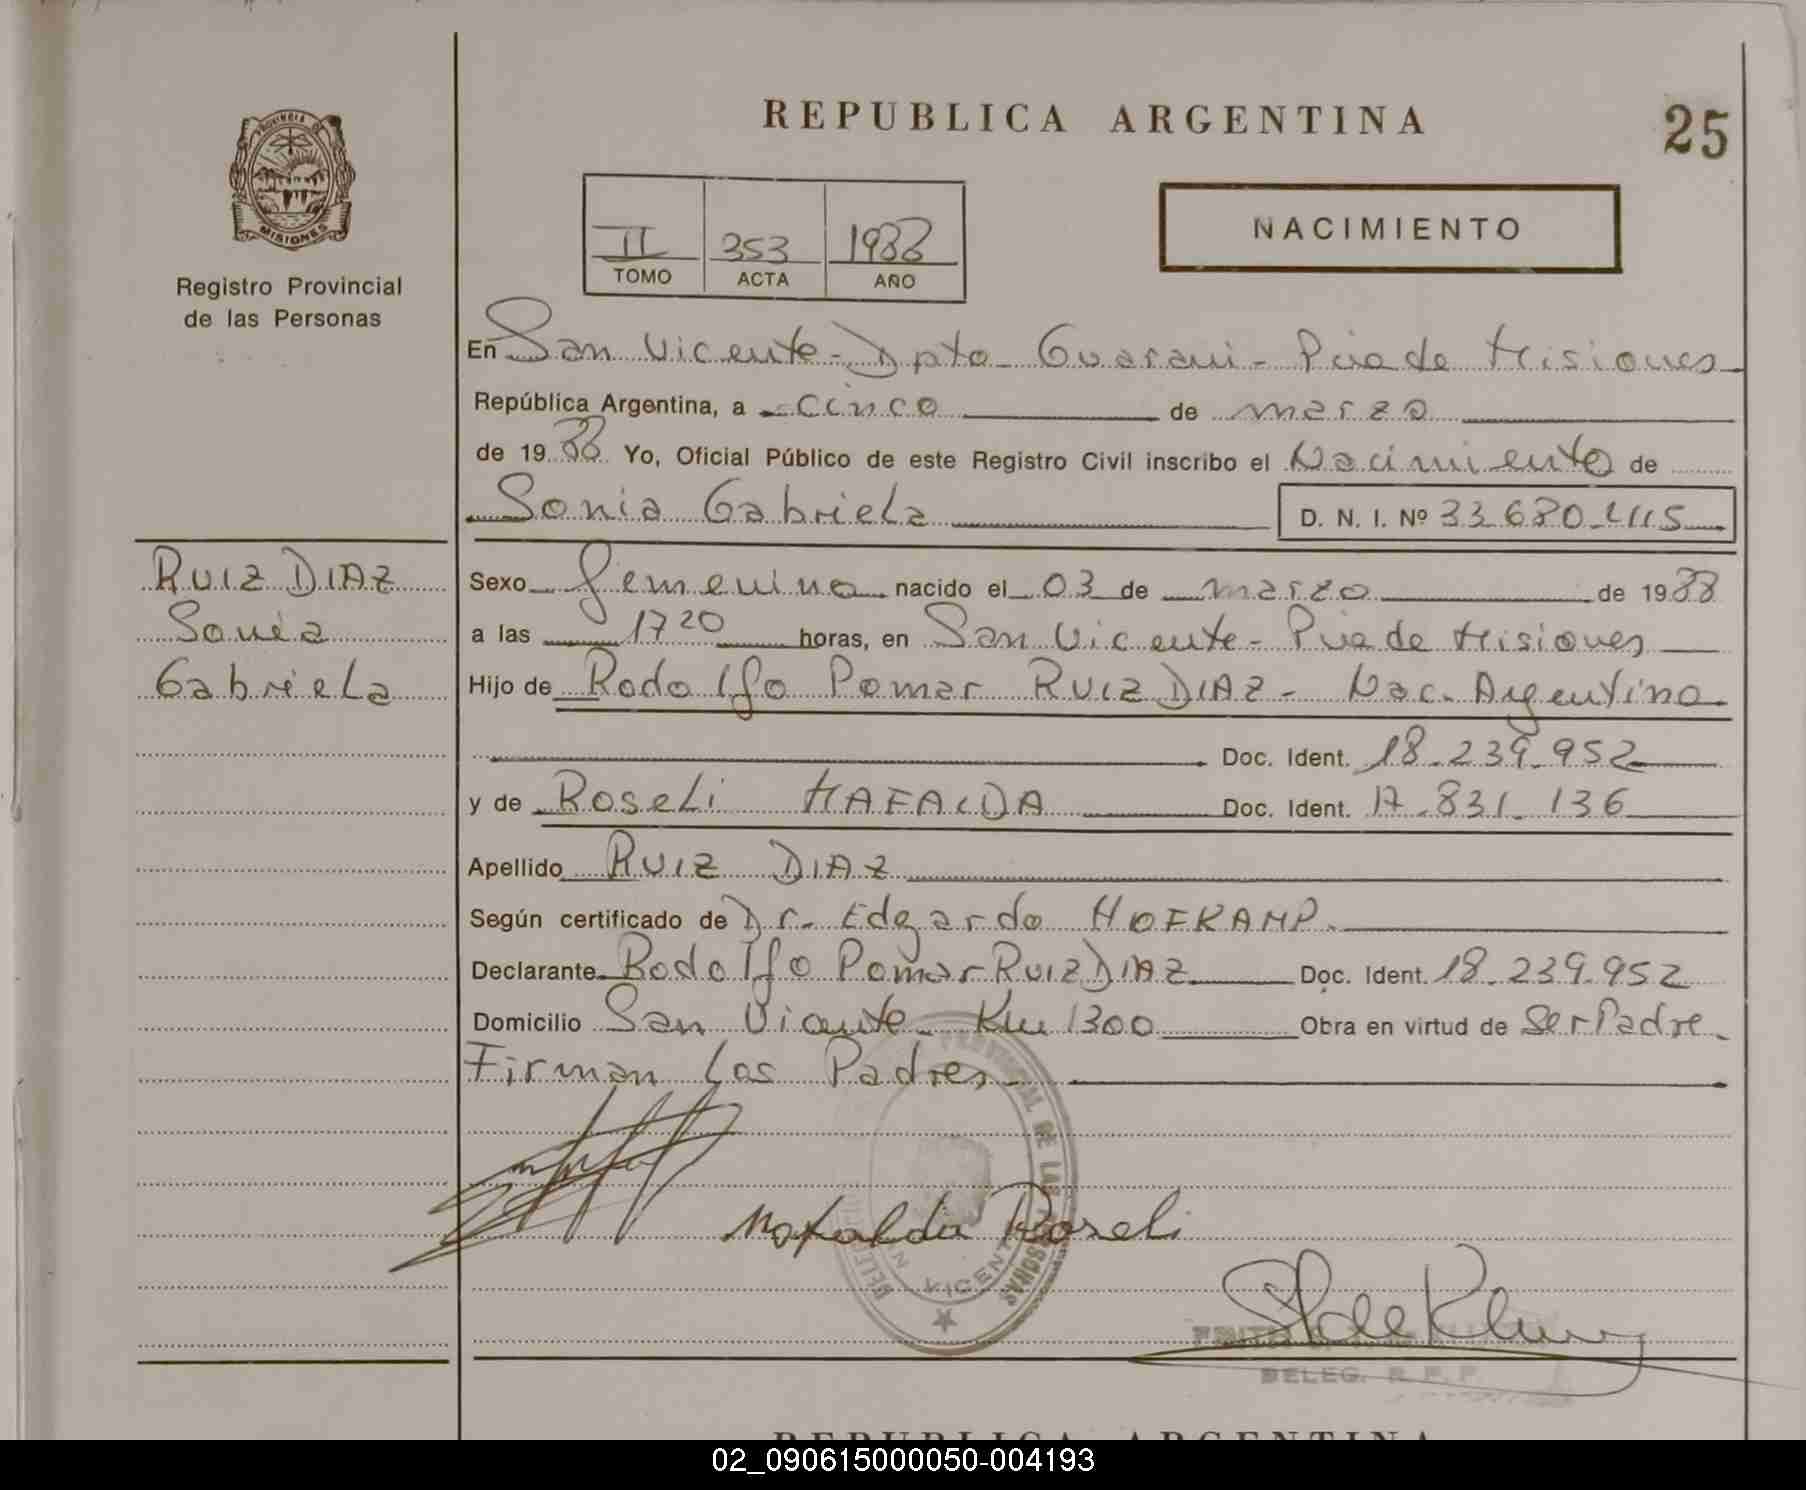 REPUBLICA ARGENTINA
25
PROVINCIA DE
MISIONES
Registro Provincial
de las Personas
II 353 1988
TOMO ACTA AÑO
NACIMIENTO
En San Vicente - Dpto Guarani - Pcia de Misiones
República Argentina, a cinco de marzo
de 1988 Yo, Oficial Público de este Registro Civil inscribo el Nacimiento de
Sonia Gabriela D. N. I. Nº 33.680.4115
RUIZ DIAZ
Sonia
Gabriela
Sexo Femenino nacido el 03 de marzo de 1988
a las 17 20 horas, en San Vicente - Pcia de Misiones
Hijo de Rodolfo Pomar RUIZ DIAZ - Nac. Argentino
Doc. Ident. 18.239.952
y de Roseli MAFALDA Doc. Ident. 17.831.136
Apellido RUIZ DIAZ
Según certificado de Dr. Edgardo HOFKAMP.
Declarante Rodolfo Pomar RUIZ DIAZ Doc. Ident. 18.239.952
Domicilio San Vicente Km 1300 Obra en virtud de Ser Padre.
Firman Los Padres.
Mafalda Roseli
DE LAS PERSONAS
VICENTE
DELEG. R. P. P.
REPUBLICA ARGENTINA
02_090615000050-004193